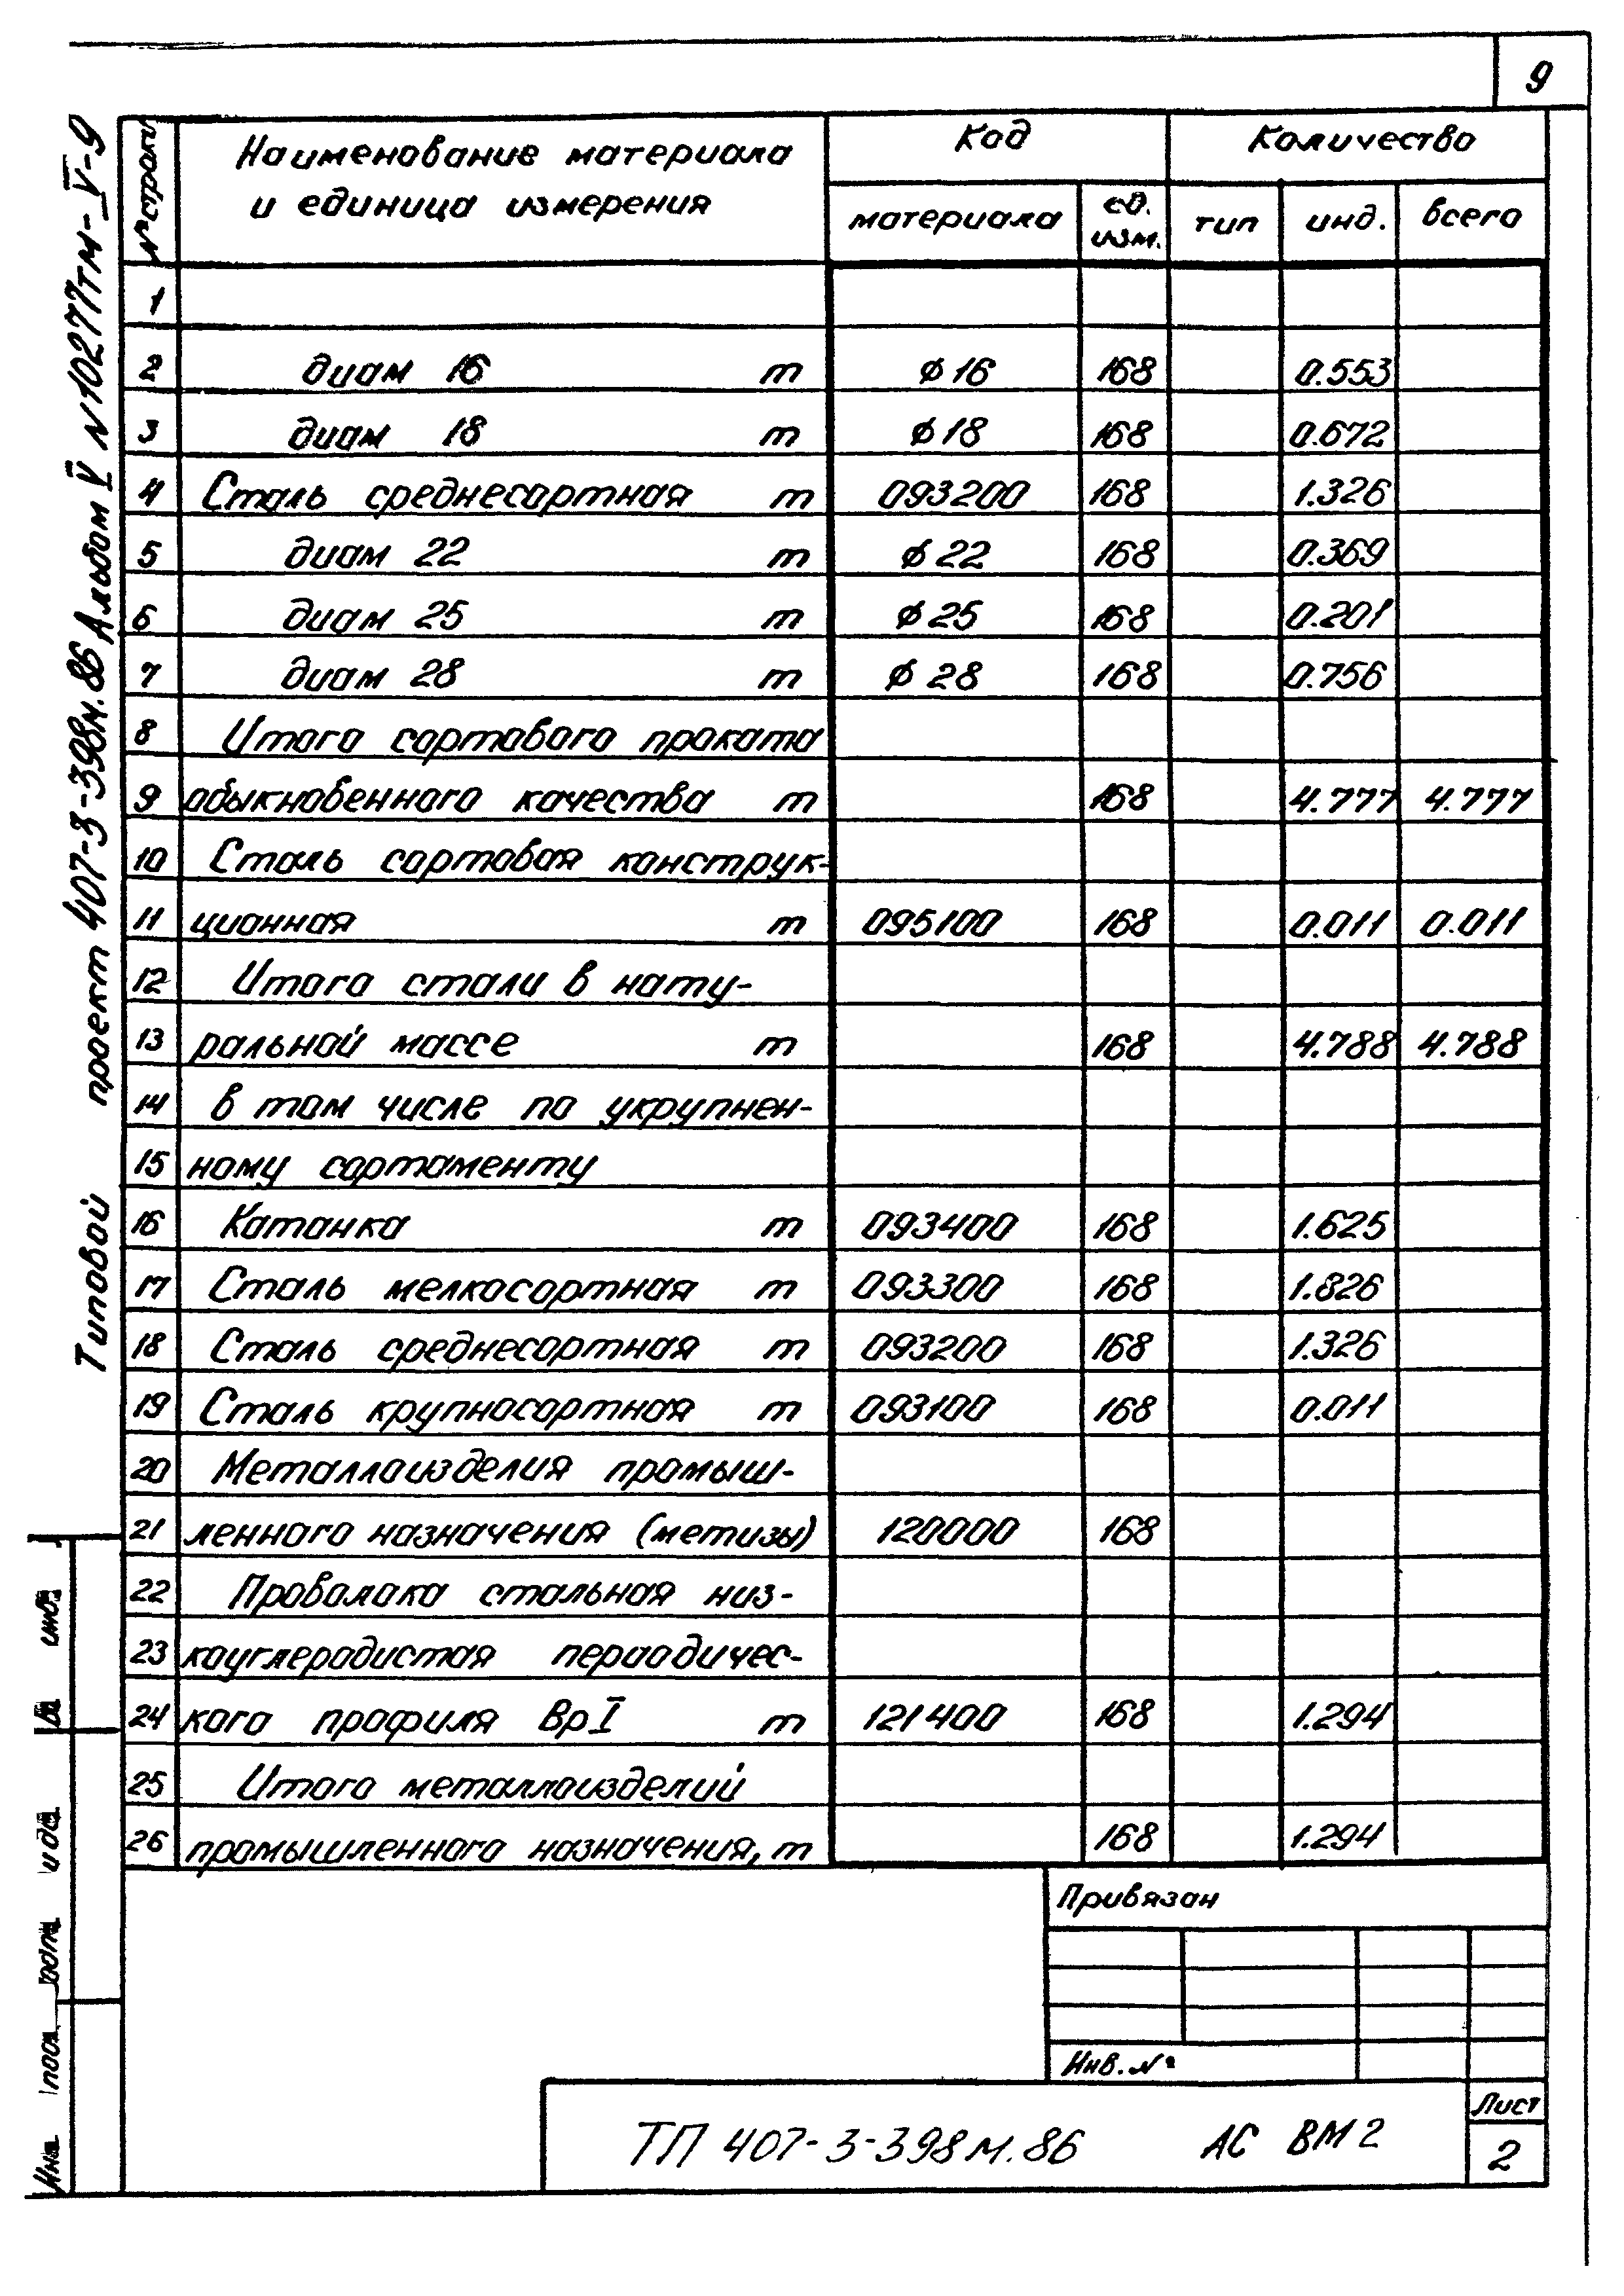 9
Типовой проект 407-3-398м.86 Альбом V N10277тм-V-9
№ строки Наименование материала и единица измерения Код Количество
материала ед. изм. тип инд. всего
1
2 диам 16 т ø16 168 0.553
3 диам 18 т ø18 168 0.672
4 Сталь среднесортная т 093200 168 1.326
5 диам 22 т ø22 168 0.369
6 диам 25 т ø25 168 0.201
7 диам 28 т ø28 168 0.756
8 Итого сортового проката
9 обыкновенного качества т 168 4.777 4.777
10 Сталь сортовая конструк-
11 ционная т 095100 168 0.011 0.011
12 Итого стали в нату-
13 ральной массе т 168 4.788 4.788
14 в том числе по укрупнен-
15 ному сортаменту
16 Катанка т 093400 168 1.625
17 Сталь мелкосортная т 093300 168 1.826
18 Сталь среднесортная т 093200 168 1.326
19 Сталь крупносортная т 093100 168 0.011
20 Металлоизделия промыш-
21 ленного назначения (метизы) 120000 168
22 Проволока стальная низ-
23 коуглеродистая периодичес-
24 кого профиля Вр I т 121400 168 1.294
25 Итого металлоизделий
26 промышленного назначения, т 168 1.294
Привязан
Инв. №
ТП 407-3-398м.86 АС ВМ2
Лист
2